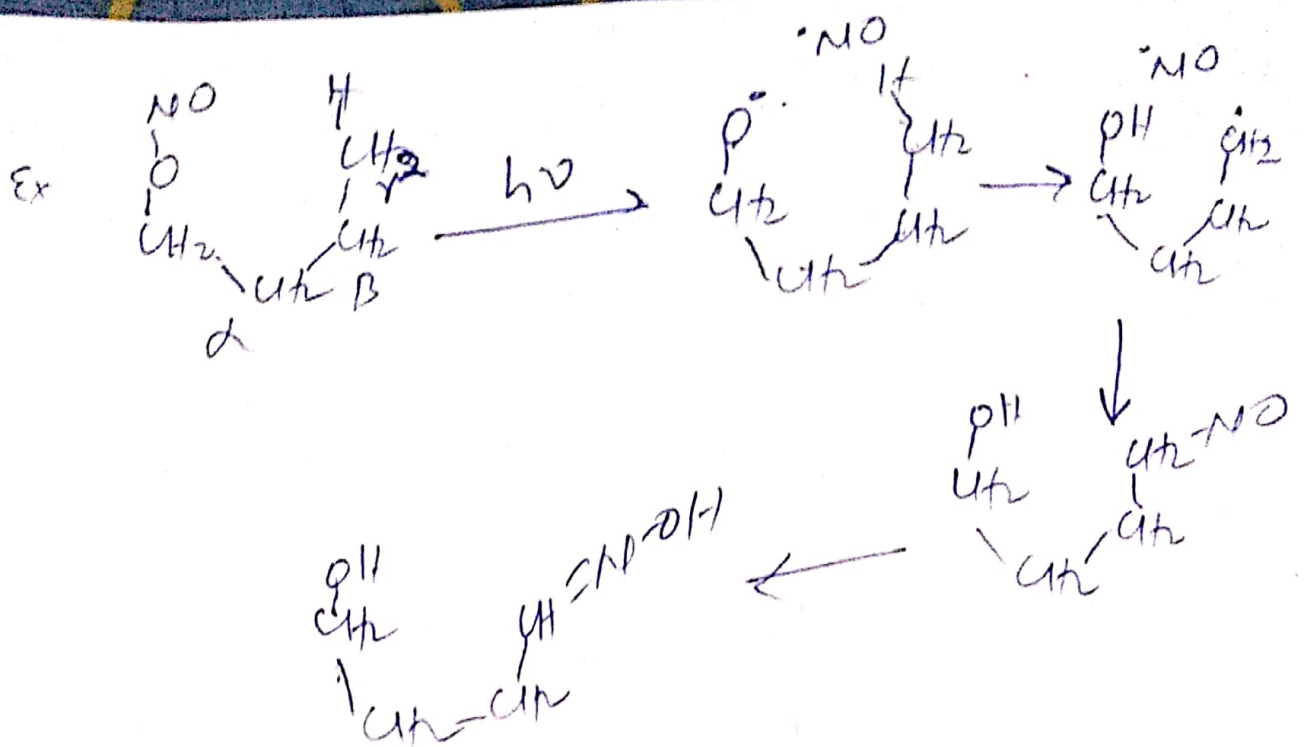 Ex
NO
O
CH2
CH2
α
CH2
β
CH2
γ
H
hν
·NO
O·
CH2
CH2
CH2
CH2
H
·NO
OH
CH2
CH2
CH2
ĊH2
OH
CH2
CH2
CH2
CH2-NO
OH
CH2
CH2-CH2
CH=N-OH